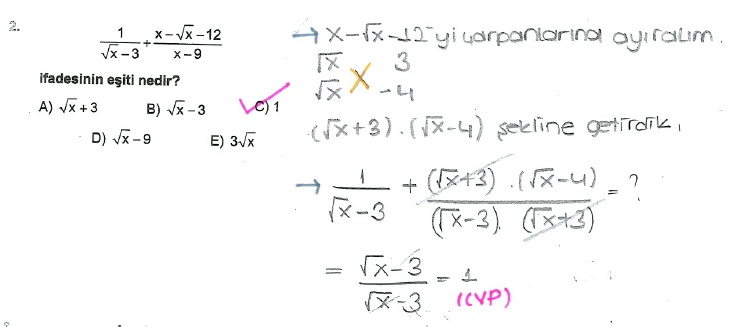 2.
1/(√x-3) + (x-√x-12)/(x-9)
ifadesinin eşiti nedir?
A) √x+3 B) √x-3 C) 1
D) √x-9 E) 3√x
→ x-√x-12'yi çarpanlarına ayıralım.
√x 3
√x -4
(√x+3).(√x-4) şekline getirdik.
→ 1/(√x-3) + (√x+3).(√x-4)/(√x-3).(√x+3) = ?
= (√x-3)/(√x-3) = 1
(CVP)